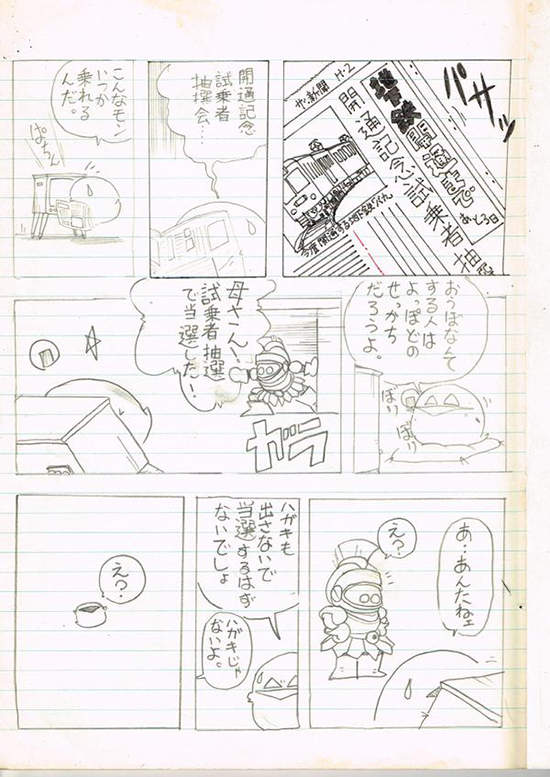 バサッ
ザ・新聞 H-2
開通記念試乗者抽選
開通記念
試乗者
抽選
会…
こんなモン
いつか
乗れる
んだ。
ぱちん
おうぼなんて
する人は
よっぽどの
せっかち
だろうよ。
ぼり
ぼり
母さん!
試乗者抽選
で当選した!
ガラ
あ…あんたねェ
え?
ハガキも
出さないで
当選するはず
ないでしょ
ハガキじゃ
ないよ。
え?